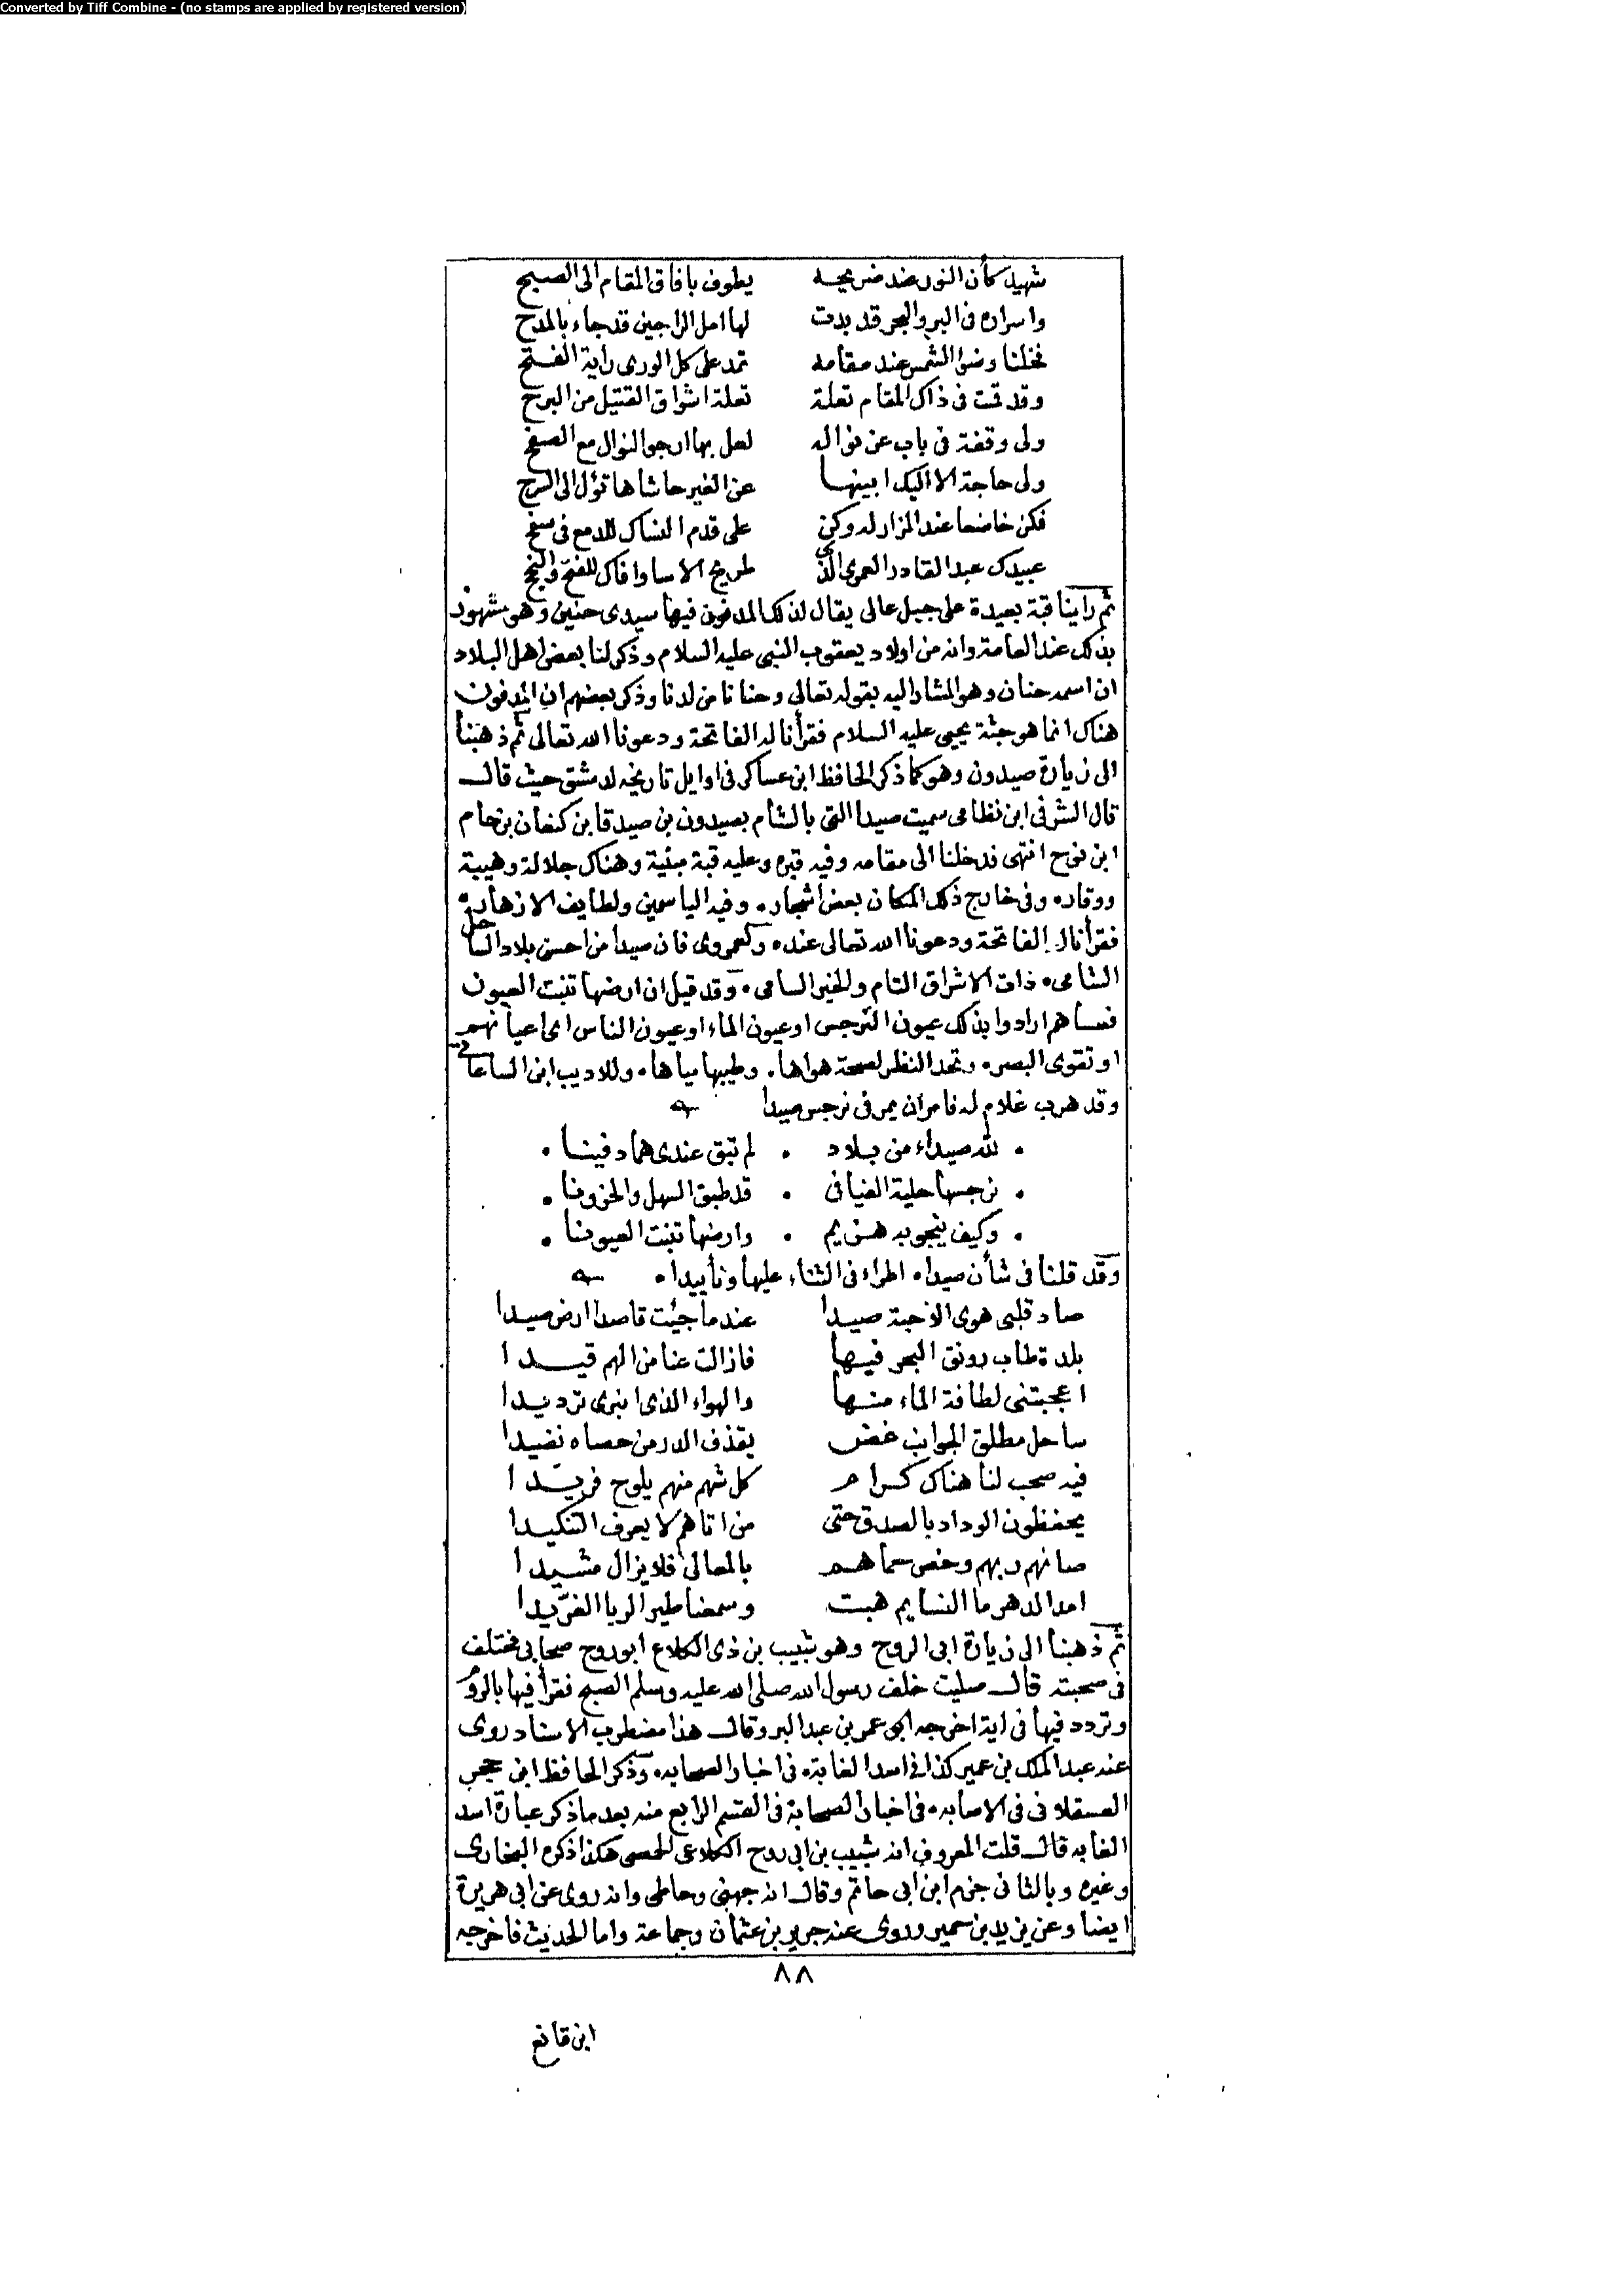 Converted by Tiff Combine - (no stamps are applied by registered version)
شهيد كأن النور عند ضريحه يطوف بافاق المقام الى الصبح
واسراره فى البر والبحر قد بدت لها امل الراجين قد جاء بالمدح
نخلنا وضؤ الشمس عند مقامه تمد على كل الورى راية الفتح
وقد قمت فى ذاك المقام تعلة تعلة اشواق القتيل من البرح
ولى وقفة فى باب عن نواله لعل بها ارجو النوال مع الصفح
ولى حاجة الا اليك ابينها عن الغير حاشاها تؤل الى الشرح
فكن خاضعا عند المزار له وكن على قدم النساك للدمع فى سفح
عبيدك عبد القادر العمرى الذى طريح الاسا وافاك للفتح والنجح
ثم راينا قبة بعيدة على جبل عالى يقال لذلك المدفون فيها سيدى حنين وهو مشهور
بذلك عند العامة وانه من اولاد يعقوب النبى عليه السلام وذكر لنا بعض اهل البلاد
ان اسمه حنان وهو المشار اليه بقوله تعالى وحنانا من لدنا وذكر بعضهم ان المدفون
هناك انما هو جثة يحيى عليه السلام فقرأنا له الفاتحة ودعونا الله تعالى ثم ذهبنا
الى زيارة صيدون وهو كما ذكر الحافظ ابن عساكر فى اوايل تاريخه لدمشق حيث قال
قال الشرفى ابن نظامى سميت صيدا التى بالشام بصيدون بن صيدقا بن كنعان بن حام
ابن نوح انتهى فدخلنا الى مقامه وفيه قبره وعليه قبة مبنية وهناك جلالة وهيبة
ووقاره وفى خارج ذلك المكان بعض اشجار. وفيه الياسمين ولطايف الازهاره
فقرأنا له الفاتحة ودعونا الله تعالى عنده ولعمروى فان صيدا من احسن بلاد الساحل
الشامى. ذات الاشراق التام والخير السامى. وقد قيل ان ارضها تنبت العيون
فعساهم ارادوا بذلك عيون النرجس او عيون الماء او عيون الناس اى اعيانهم
او تقوى البصر. وتحد النظر لصحة هواها. وطيبها مياها. وللاديب ابن الساعاتى
وقد هرب غلام له فامر ان يمر فى نرجس صيدا
. لله صيداء من بلاد . لم تبق عندى هما دفينا .
. نرجسها حلية الفيافى . قد طبق السهل والحزونا .
. وكيف ينجو به هزيم . وارضها تنبت العيونا .
وقد قلنا فى شأن صيدا. اطراء فى الثناء عليها وتأييدا.
صاد قلبى هوى الاحبة صيدا عندما جيئت قاصدا ارض صيدا
بلدة طاب رونق البحر فيها فازالت عنا من الهم قيدا
اعجبتنى لطافة الماء منها والهواء الذى انبرى ترديدا
ساحل مطلق الجوانب غض يقذف الدر من حصاه نضيدا
فيه صحب لنا هناك كرام كل شهم منهم يلوح فريدا
يحفظون الوداد بالصدق حتى من اتاهم لا يعرف التنكيدا
صانهم ربهم وخص حماهم بالمعالى فلا يزال مشيدا
امد الدهر ما النسايم هبت وسمعنا طير الربا الغرّيدا
ثم ذهبنا الى زيارة ابى الروح وهو شبيب بن ذى الكلاع ابو روح صحابى مختلف
فى صحبته قال صليت خلف رسول الله صلى الله عليه وسلم الصبح فقرأ فيها بالروم
وتردد فيها فى اية اخرجه ابى عمر بن عبد البر وقال هذا مضطرب الاسناد روى
عنه عبد الملك بن عمير كذا فى اسد الغابة. فى اخبار الصحابه. وذكر الحافظ ابن حجر
العسقلانى فى الاصابه. فى اخبار الصحابة فى القسم الرابع منه بعد ما ذكر عبارة اسد
الغابه قال قلت المعروف انه شبيب بن ابى روح الكلاعى الحمصى هكذا ذكره البخارى
وغيره وبالثانى جزم ابن ابى حاتم وقال انه جهنى وحاطى وانه روى عن ابى هريرة
ايضا وعن يزيد بن سمير وروى عنه جرير بن عثمان وجماعة واما الحديث فاخرجه
٨٨
ابن قانع